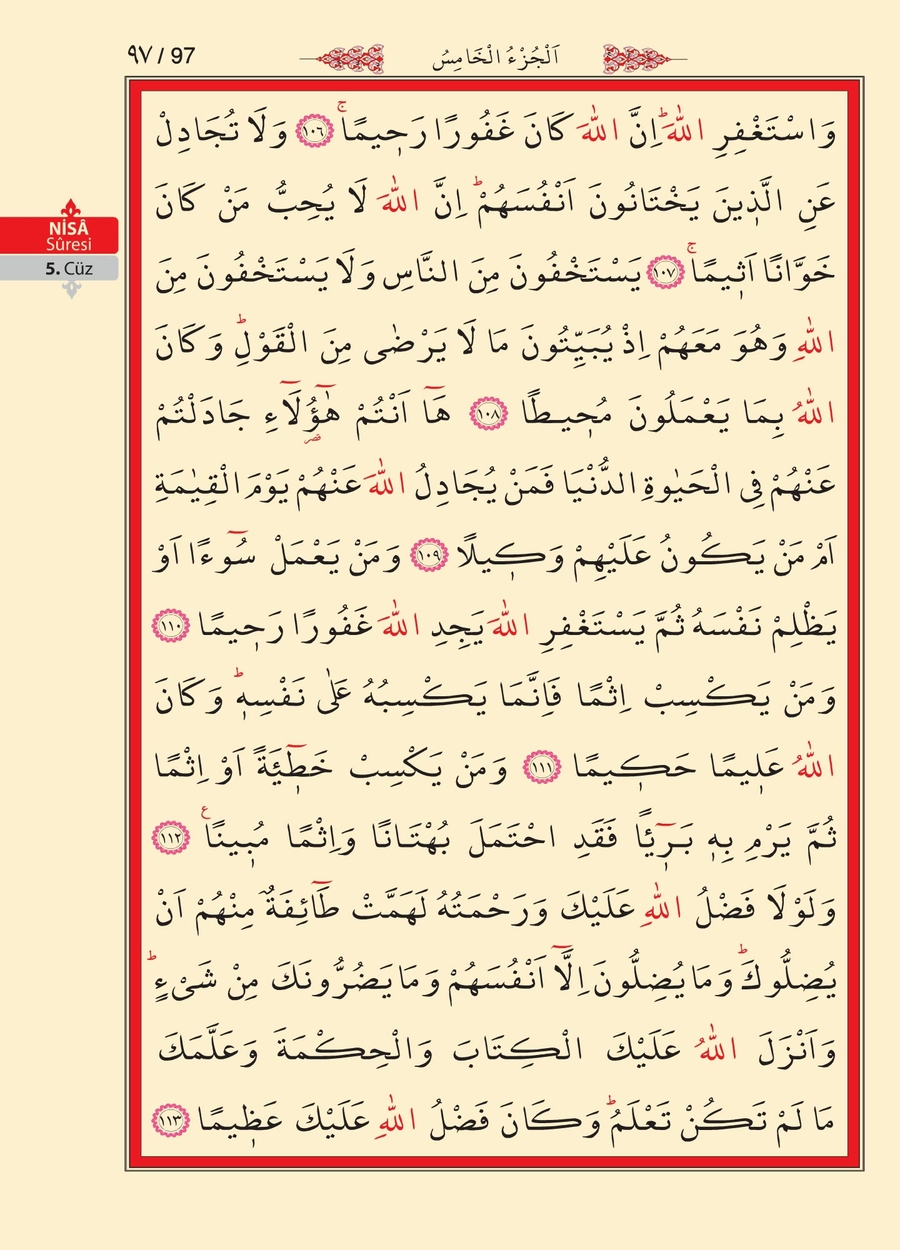 ٩٧ / 97
اَلْجُزْءُ الْخَامِسُ
NİSÂ
Sûresi
5. Cüz
وَاسْتَغْفِرِ اللّٰهَۜ اِنَّ اللّٰهَ كَانَ غَفُورًا رَح۪يمًاۚ ﴿١٠٦﴾ وَلَا تُجَادِلْ
عَنِ الَّذ۪ينَ يَخْتَانُونَ اَنْفُسَهُمْۜ اِنَّ اللّٰهَ لَا يُحِبُّ مَنْ كَانَ
خَوَّانًا اَث۪يمًاۚ ﴿١٠٧﴾ يَسْتَخْفُونَ مِنَ النَّاسِ وَلَا يَسْتَخْفُونَ مِنَ
اللّٰهِ وَهُوَ مَعَهُمْ اِذْ يُبَيِّتُونَ مَا لَا يَرْضٰى مِنَ الْقَوْلِۜ وَكَانَ
اللّٰهُ بِمَا يَعْمَلُونَ مُح۪يطًا ﴿١٠٨﴾ هَٓا اَنْتُمْ هٰٓؤُ۬لَٓاءِ جَادَلْتُمْ
عَنْهُمْ فِى الْحَيٰوةِ الدُّنْيَا فَمَنْ يُجَادِلُ اللّٰهَ عَنْهُمْ يَوْمَ الْقِيٰمَةِ
اَمْ مَنْ يَكُونُ عَلَيْهِمْ وَك۪يلًا ﴿١٠٩﴾ وَمَنْ يَعْمَلْ سُٓوءًا اَوْ
يَظْلِمْ نَفْسَهُ ثُمَّ يَسْتَغْفِرِ اللّٰهَ يَجِدِ اللّٰهَ غَفُورًا رَح۪يمًا ﴿١١٠﴾
وَمَنْ يَكْسِبْ اِثْمًا فَاِنَّمَا يَكْسِبُهُ عَلٰى نَفْسِه۪ۜ وَكَانَ
اللّٰهُ عَل۪يمًا حَك۪يمًا ﴿١١١﴾ وَمَنْ يَكْسِبْ خَط۪ٓيـَٔةً اَوْ اِثْمًا
ثُمَّ يَرْمِ بِه۪ بَر۪ٓيـًٔا فَقَدِ احْتَمَلَ بُهْتَانًا وَاِثْمًا مُب۪ينًا۟ ﴿١١٢﴾
وَلَوْلَا فَضْلُ اللّٰهِ عَلَيْكَ وَرَحْمَتُهُ لَهَمَّتْ طَٓائِفَةٌ مِنْهُمْ اَنْ
يُضِلُّوكَۜ وَمَا يُضِلُّونَ اِلَّٓا اَنْفُسَهُمْ وَمَا يَضُرُّونَكَ مِنْ شَىْءٍۜ
وَاَنْزَلَ اللّٰهُ عَلَيْكَ الْكِتَابَ وَالْحِكْمَةَ وَعَلَّمَكَ
مَا لَمْ تَكُنْ تَعْلَمُۜ وَكَانَ فَضْلُ اللّٰهِ عَلَيْكَ عَظ۪يمًا ﴿١١٣﴾